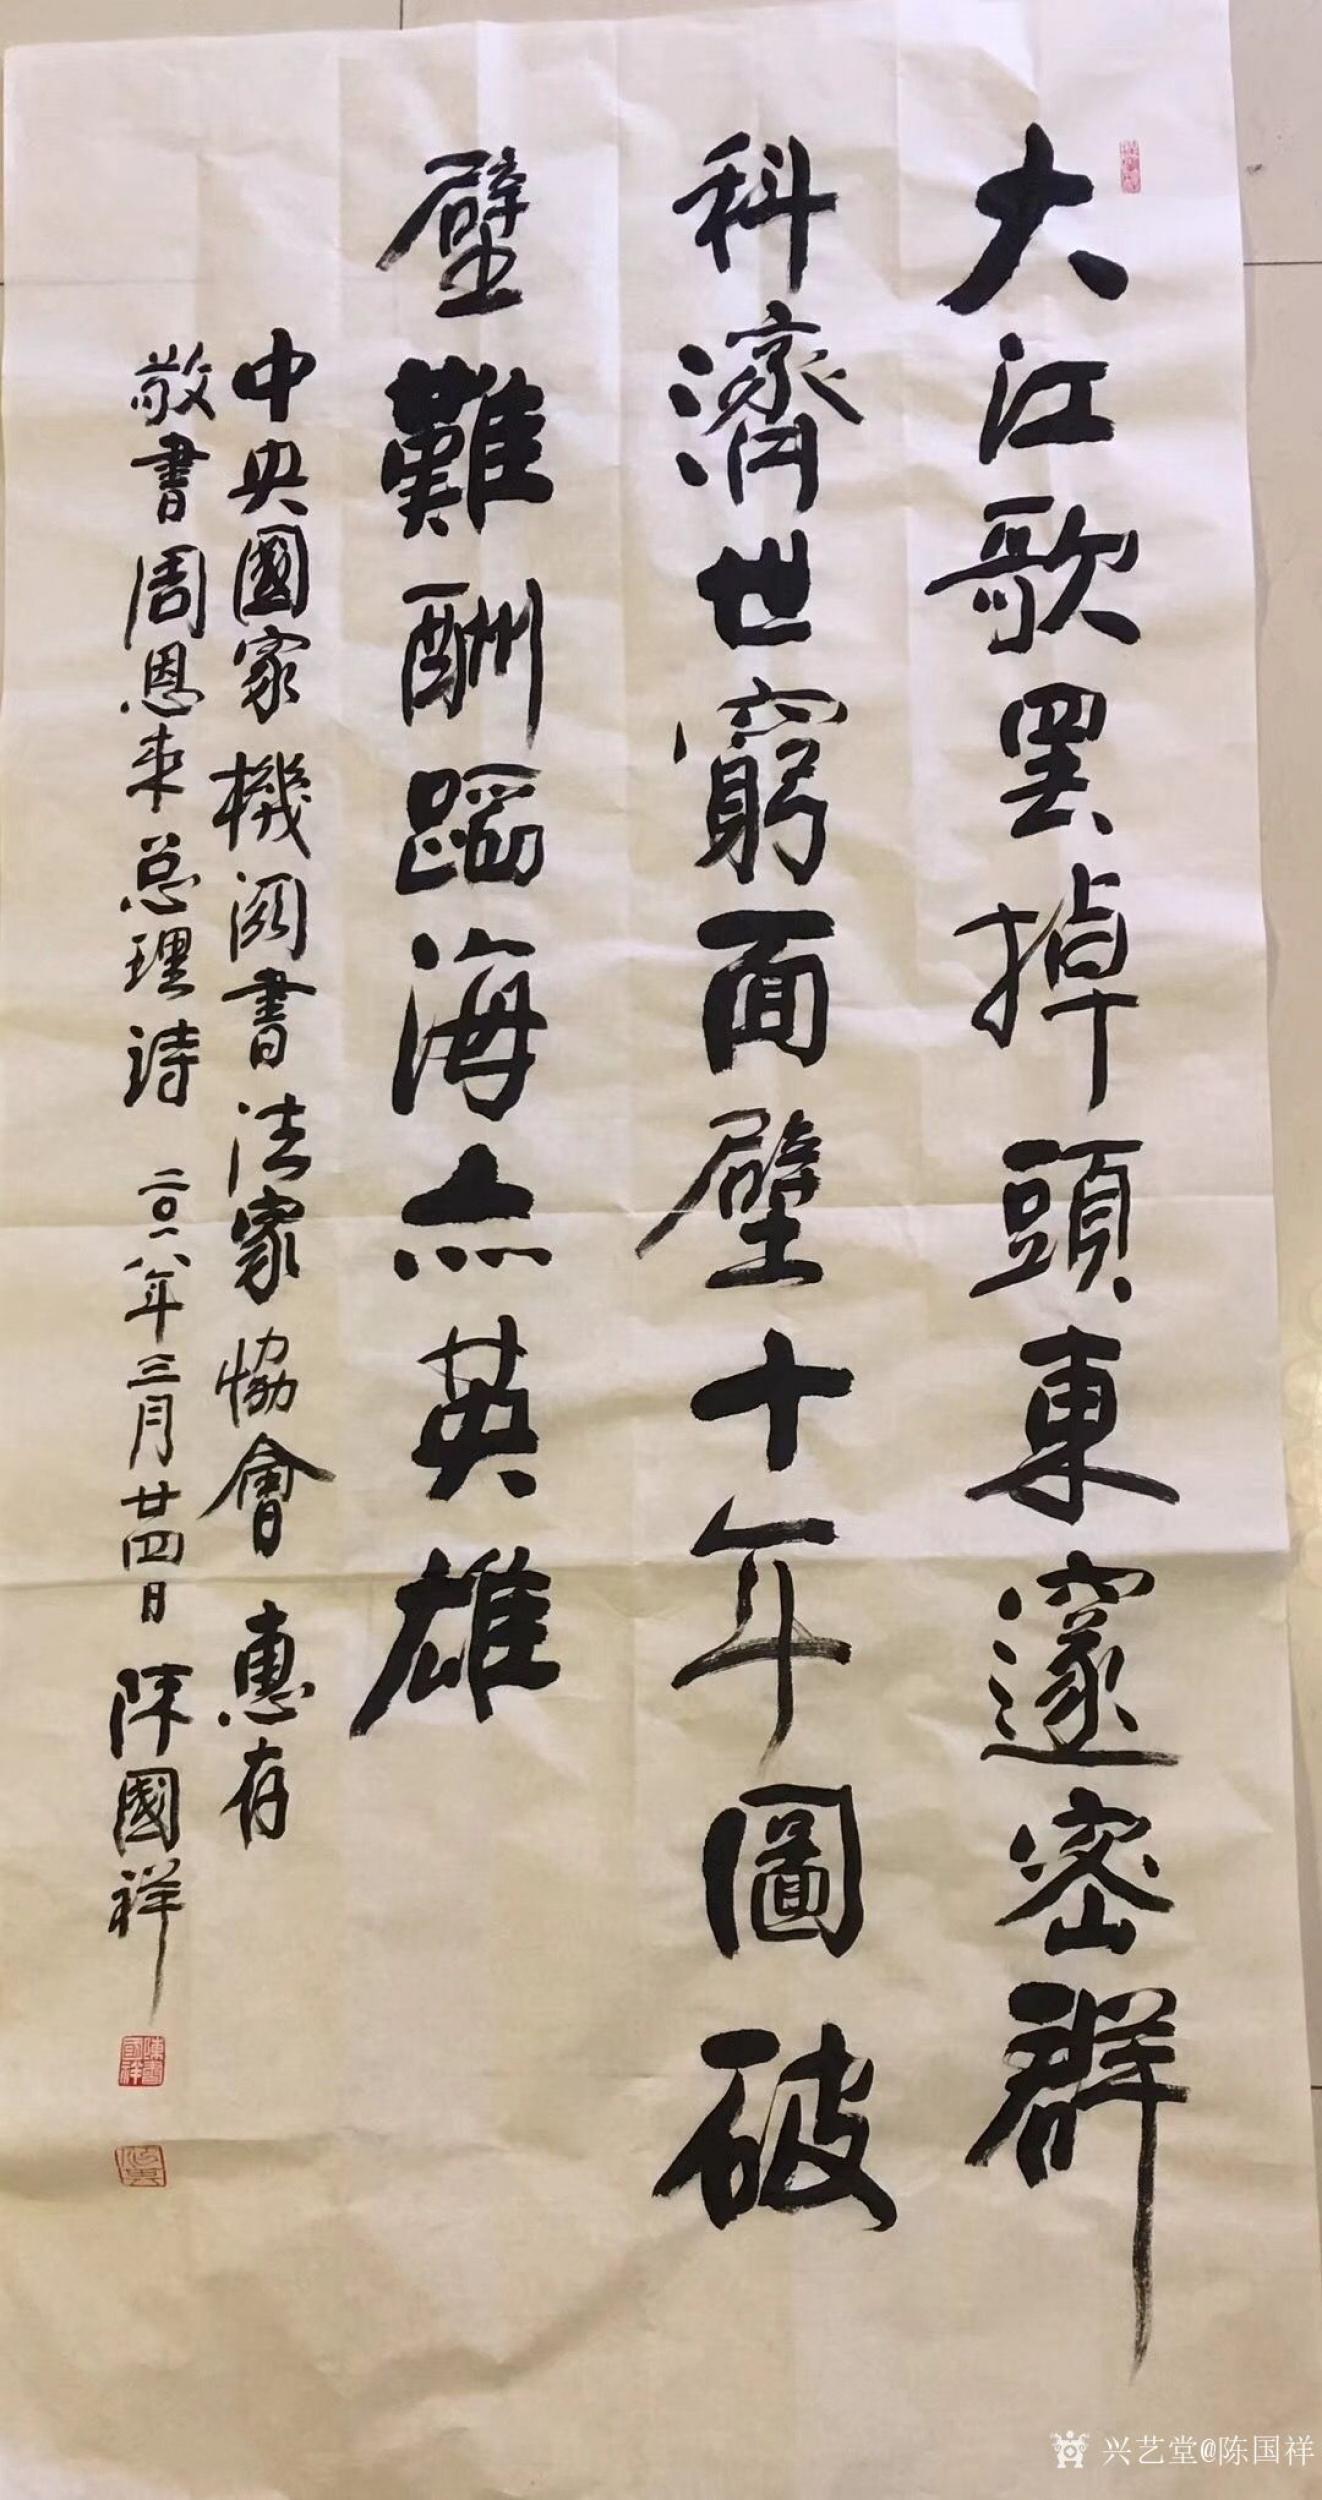 大江歌罢掉頭東邃密群
科濟世窮面壁十年圖破
壁難酬蹈海亦英雄
中央國家機関書法家協會 惠存
敬書周恩来总理詩 二〇一八年三月廿四日 陈國祥
兴艺堂@陈国祥